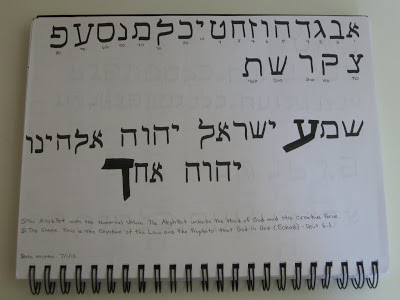 אבגדהוזחטיכלמנסעפ
צקרשת
שמע ישראל יהוה אלהינו
יהוה אחד
The Alephbet with the Numerical Values. The Alephbet unlocks the Mind of God and His Creative Force.
The Shema. This is the of the Law and the Prophets: that God is One (Echad) - Deut 6:4
Date written